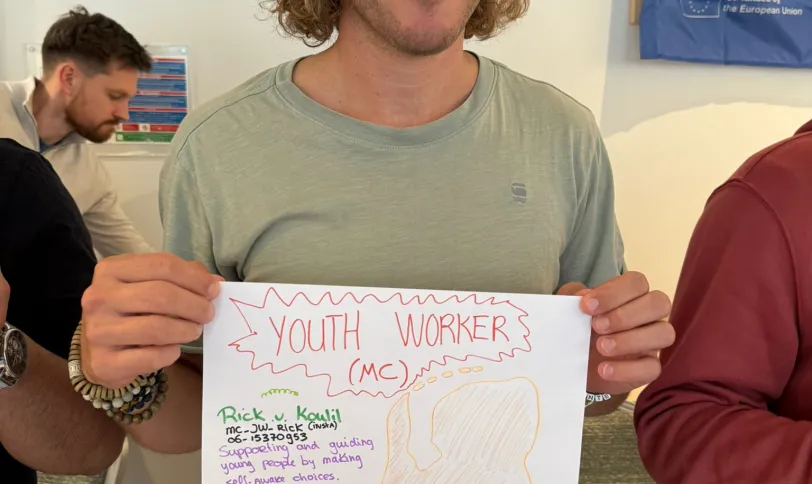 the European Union
YOUTH WORKER
(MC)
Rick v. Koulil
MC_JW_RICK (INSTA)
06-15370953
Supporting and guiding
young people by making
self-aware choices.